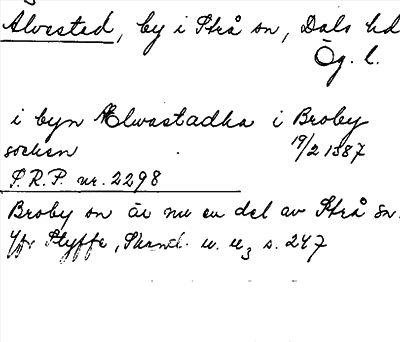 Alvestad, by i Strå sn, Dals hd
Ög. l.
i byn Ælwastadha i Broby
socken 19/2 1387
S.R.P. nr. 2298
Broby sn är nu en del av Strå sn.
Jfr Styffe, Skand. u. u3 s. 247